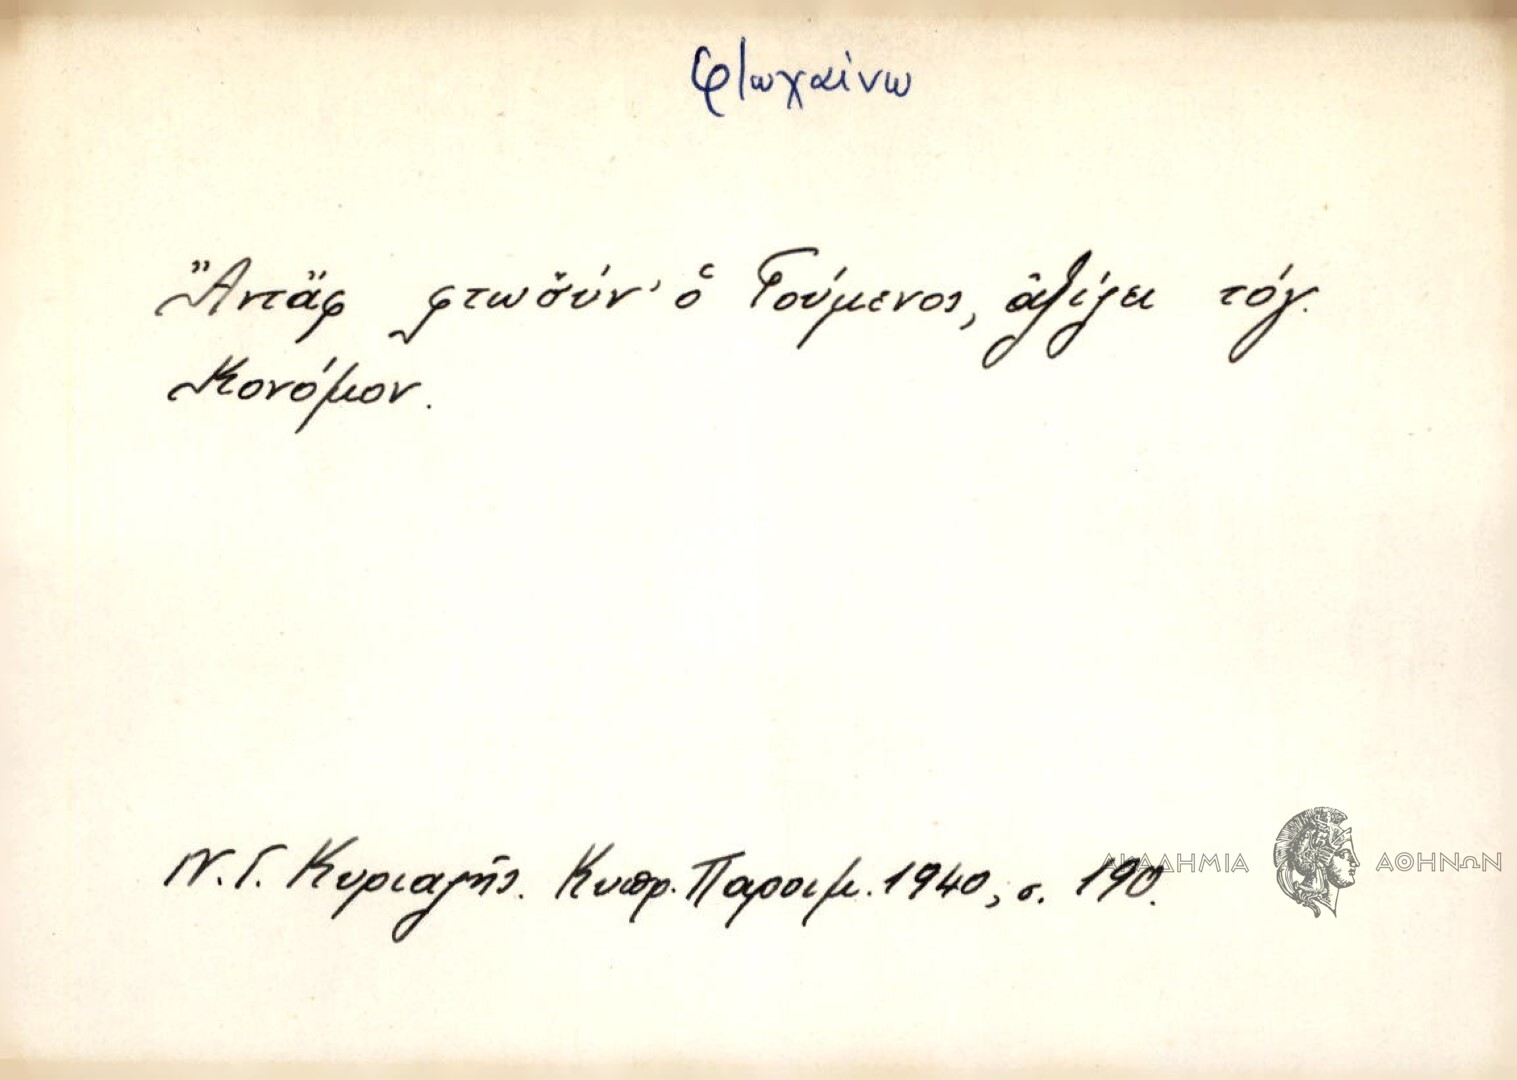 φτωχαίνω
Ἄντἂφ φτωσ̌ύν' ὁ Γούμενος, ἀγγίζει τόγ.
Κονόμον.
Ν. Γ. Κυριαζῆς. Κυπρ. Παροιμ. 1940, σ. 190.
ΑΚΑΔΗΜΙΑ ΑΘΗΝΩΝ